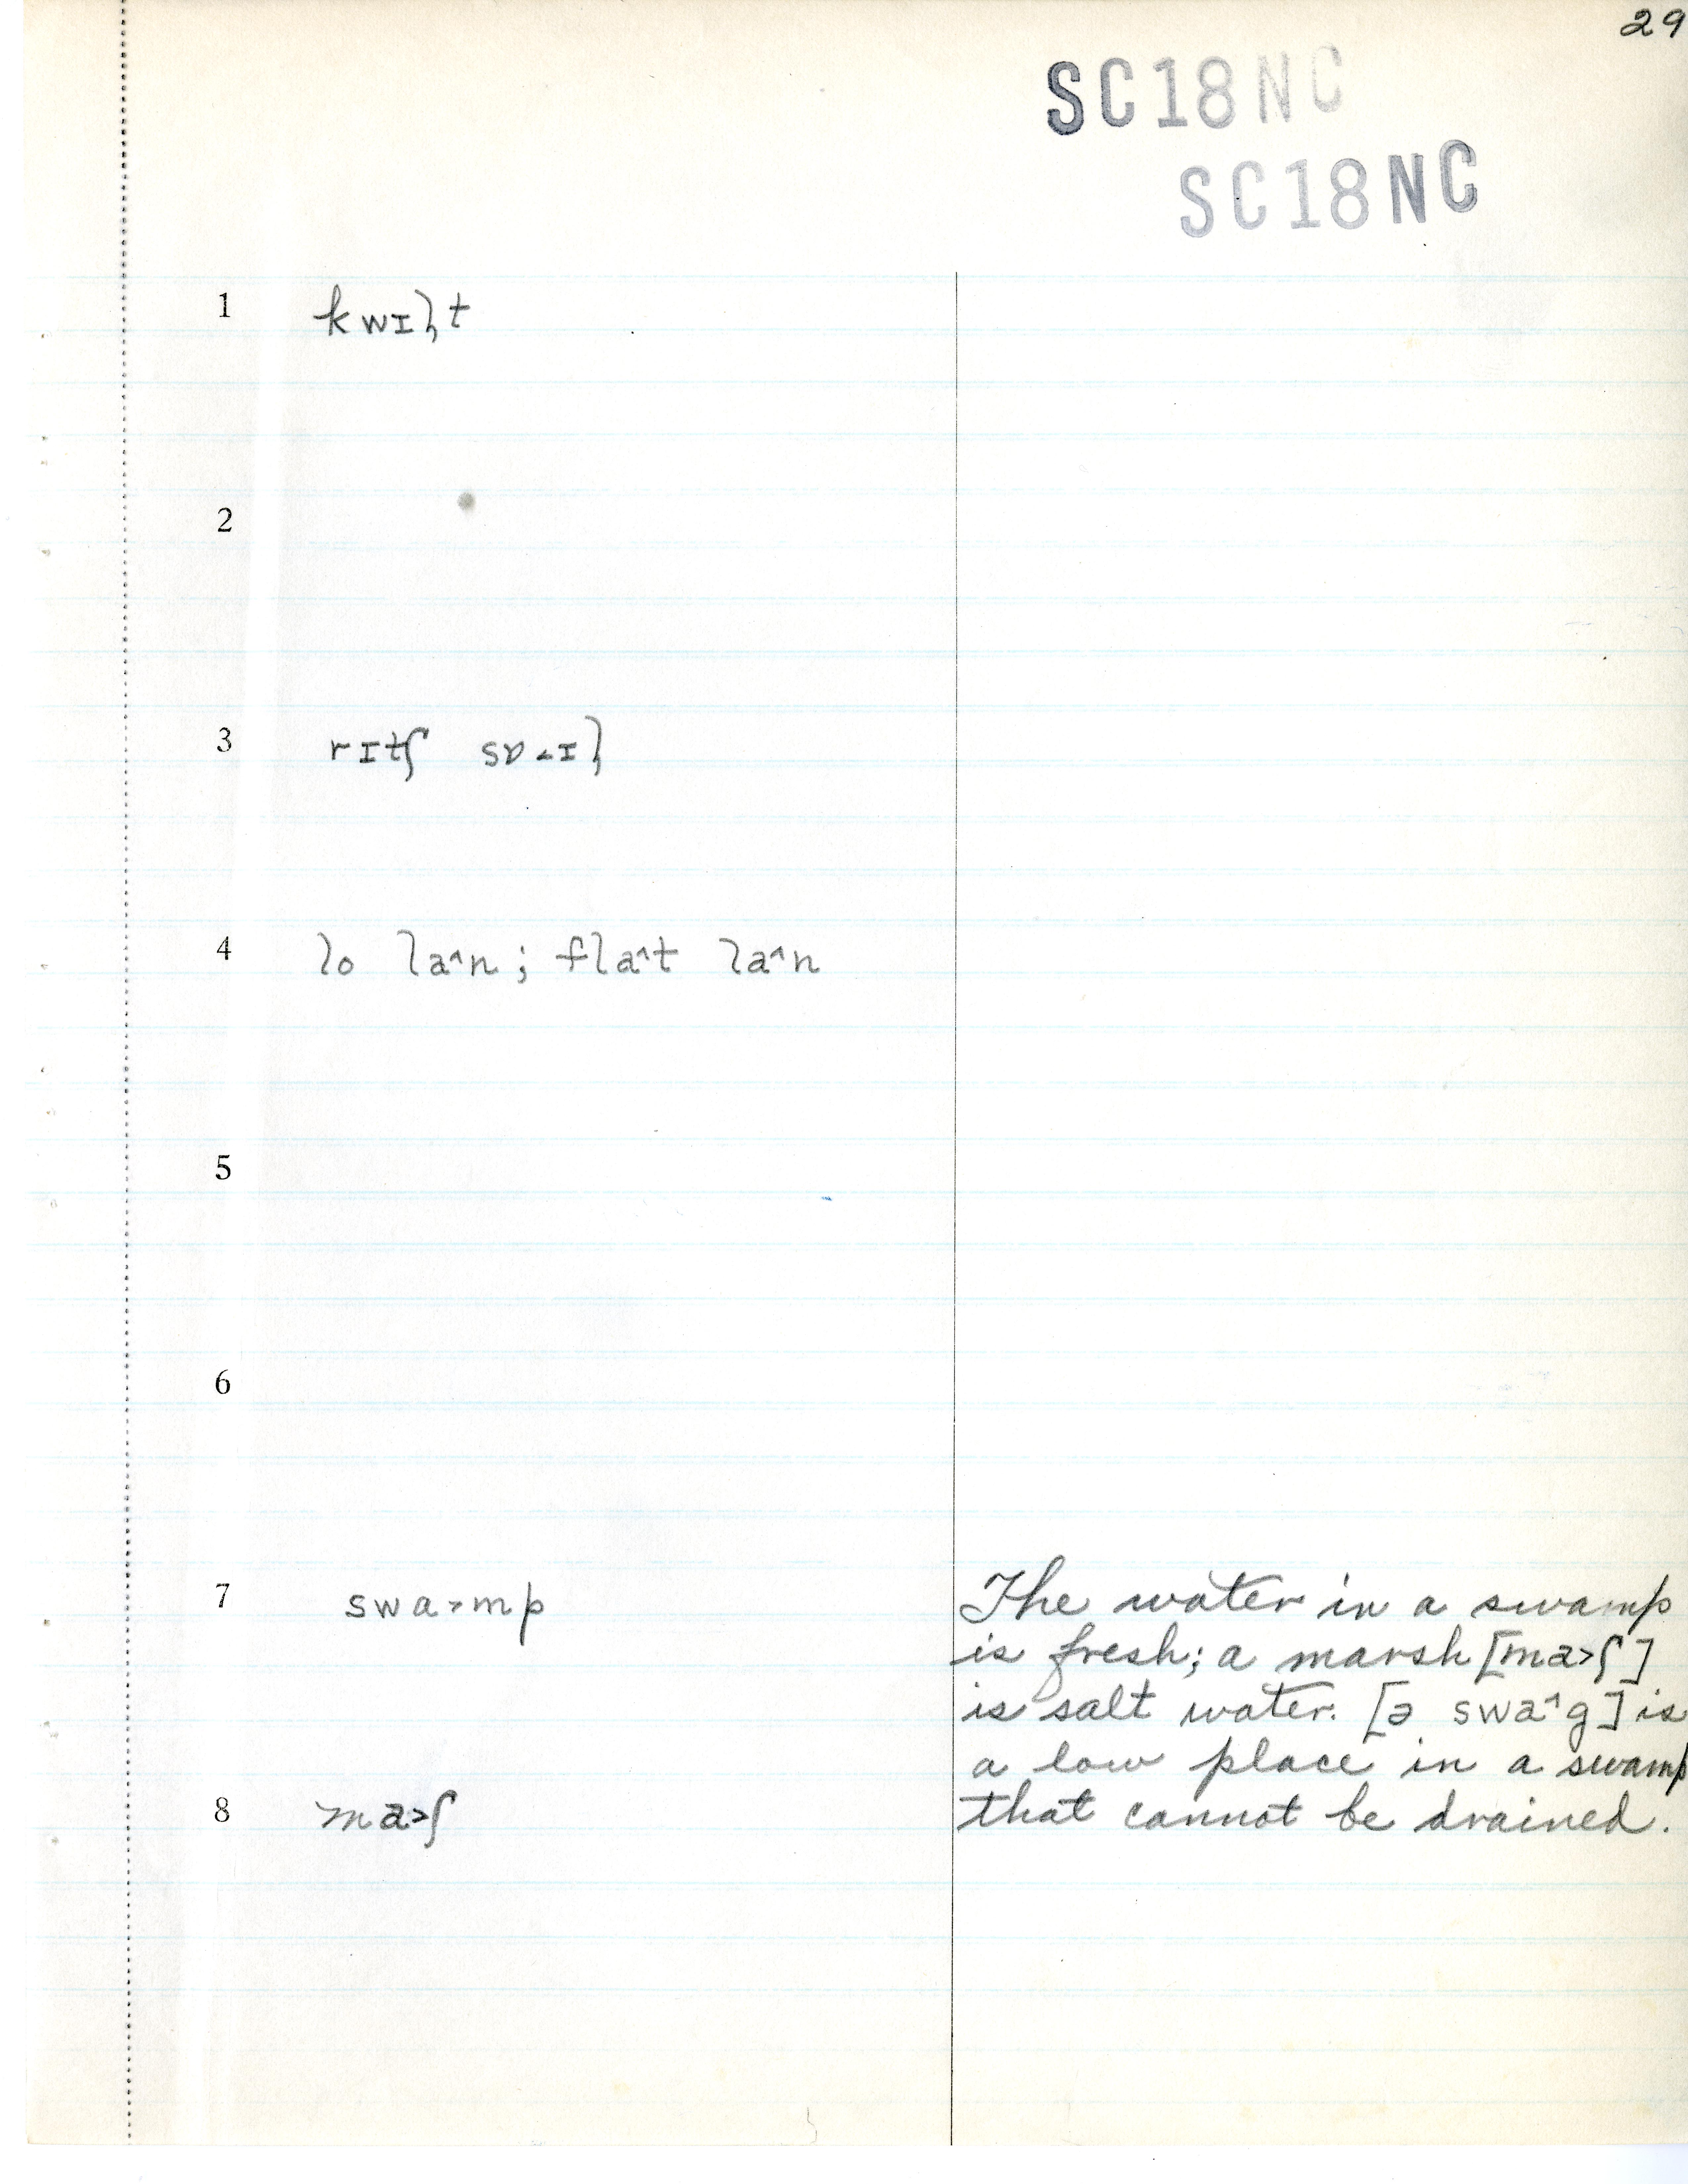 29
SC18NC
SC18NC
1 kwɪɫt
2
3 rɪtʃ sɒ˂ɪɫ
4 lo la^n; fla^t la^n
5
6
7 swa˃mp
The water in a swamp
is fresh; a marsh [ma˃ʃ]
is salt water. [ə swa^g] is
a low place in a swamp
8 ma˃ʃ
that cannot be drained.